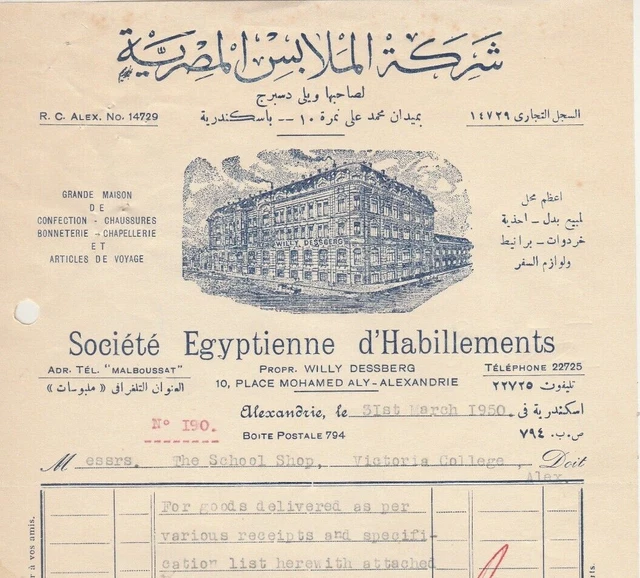 شركة الملابس المصرية
لصاحبها ويلى دسبرج
R. C. ALEX. No. 14729
بميدان محمد على نمرة ١٠ -- باسكندرية
السجل التجارى ١٤٧٢٩
GRANDE MAISON
DE
CONFECTION - CHAUSSURES
BONNETERIE - CHAPELLERIE
ET
ARTICLES DE VOYAGE
WILLY DESSBERG
اعظم محل
لمبيع بدل - احذية
خردوات - برانيط
ولوازم السفر
Société Egyptienne d'Habillements
ADR. TÉL. "MALBOUSSAT"
PROPR. WILLY DESSBERG
TÉLÉPHONE 22725
العنوان التلغرافى « ملبوسات »
10, PLACE MOHAMED ALY-ALEXANDRIE
تليفون ٢٢٧٢٥
Alexandrie, le 31st March 1950. اسكندرية فى
No 190.
BOITE POSTALE 794
ص.ب. ٧٩٤
Messrs. The School Shop, Victoria College, Doit
Alex.
For goods delivered as per
various receipts and specifi-
cation list herewith attached
r à vos amis.
arts.